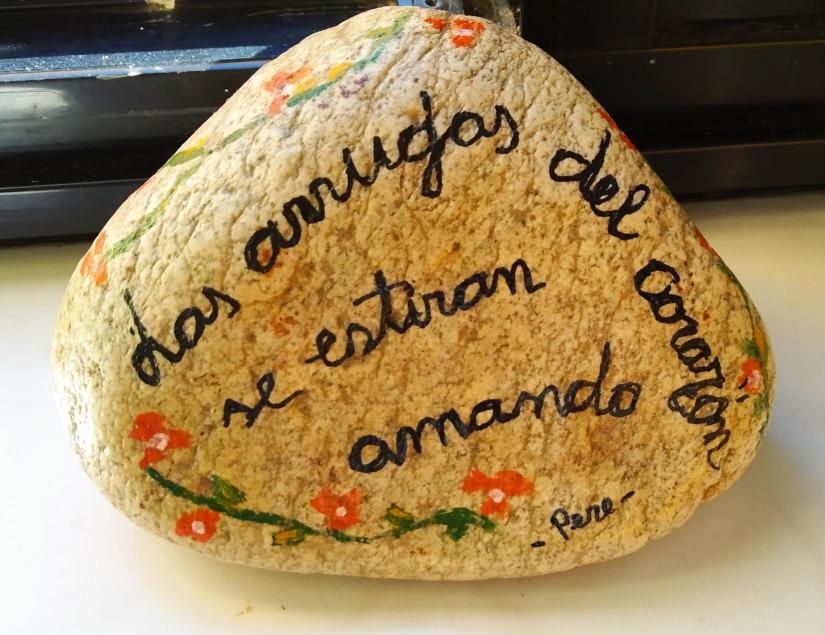 Las arrugas del corazón
se estiran
amando
-Pere-